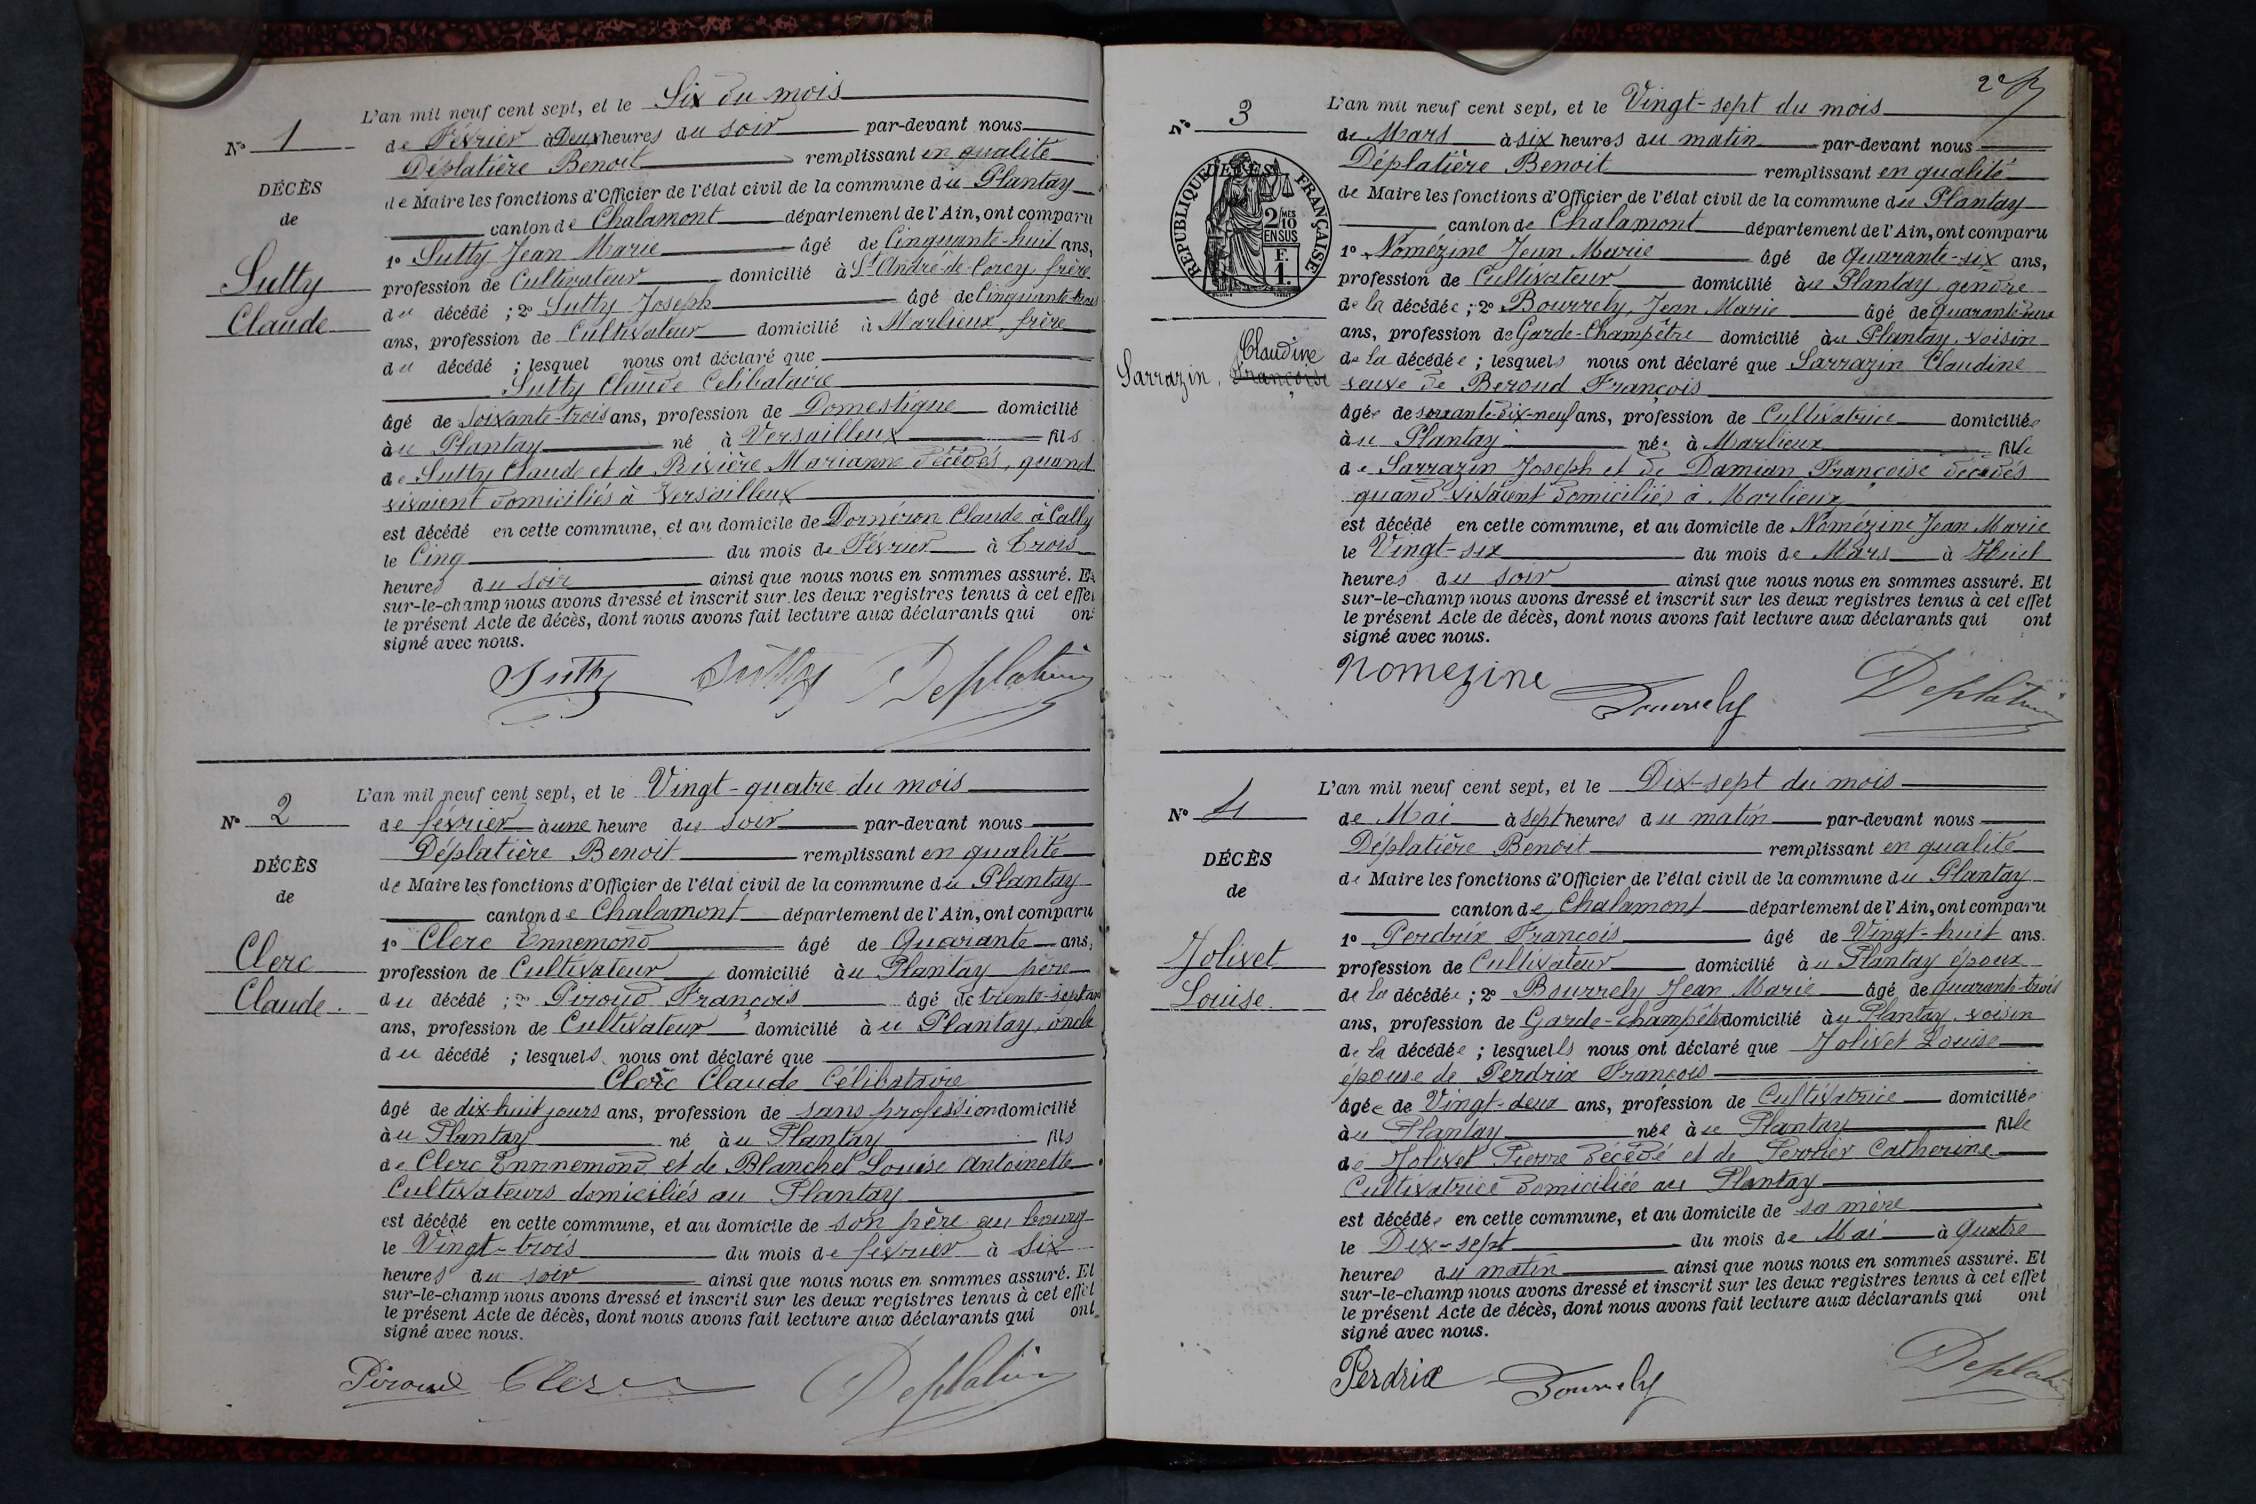 L'an mil neuf cent sept, et le Six du mois
N° 1
de Février à Deux heures du soir par-devant nous
Déplatière Benoit remplissant en qualité
DÉCÈS
de Maire les fonctions d'Officier de l'état civil de la commune du Plantay
de
canton de Chalamont département de l'Ain, ont comparu
1° Sutty Jean Marie âgé de Cinquante-huit ans,
Sutty
profession de Cultivateur domicilié à St André-de-Corcy, frère
Claude
du décédé ; 2° Sutty Joseph âgé de Cinquante-trois
ans, profession de Cultivateur domicilié à Marlieux, frère
du décédé ; lesquel nous ont déclaré que
Sutty Claude Célibataire
âgé de soixante-trois ans, profession de Domestique domicilié
au Plantay né à Versailleux fils
de Sutty Claude et de Rivière Marianne décédés, quand
vivaient domiciliés à Versailleux
est décédé en cette commune, et au domicile de Dornéron Claude à Cally
le Cinq du mois de Février à trois
heures du soir ainsi que nous nous en sommes assuré. Et
sur-le-champ nous avons dressé et inscrit sur les deux registres tenus à cet effet
le présent Acte de décès, dont nous avons fait lecture aux déclarants qui ont
signé avec nous.
Sutty Sutty Deplatière
L'an mil neuf cent sept, et le Vingt-quatre du mois
N° 2
de février à une heure du soir par-devant nous
Déplatière Benoit remplissant en qualité
DÉCÈS
de Maire les fonctions d'Officier de l'état civil de la commune du Plantay
de
canton de Chalamont département de l'Ain, ont comparu
1° Clerc Ennemond âgé de Quarante ans,
Clerc
profession de Cultivateur domicilié au Plantay père
Claude.
du décédé ; 2° Piroud François âgé de trente-sept ans
ans, profession de Cultivateur domicilié au Plantay, oncle
du décédé ; lesquels nous ont déclaré que
Clerc Claude Célibataire
âgé de dix-huit jours ans, profession de sans profession domicilié
au Plantay né au Plantay fils
de Clerc Ennnemond et de Blanchet Louise Antoinette
Cultivateurs domiciliés au Plantay
est décédé en cette commune, et au domicile de son père au bourg
le Vingt-trois du mois de février à six
heures du soir ainsi que nous nous en sommes assuré. Et
sur-le-champ nous avons dressé et inscrit sur les deux registres tenus à cet effet
le présent Acte de décès, dont nous avons fait lecture aux déclarants qui ont
signé avec nous.
Piroud Clerc Deplatière
L'an mil neuf cent sept, et le Vingt-sept du mois
N° 3
de Mars à six heures du matin par-devant nous
Déplatière Benoit remplissant en qualité
RÉPUBLIQUE FRANÇAISE
2/10 EN SUS
F. 1.
de Maire les fonctions d'Officier de l'état civil de la commune du Plantay
canton de Chalamont département de l'Ain, ont comparu
1° Nomézine Jean Marie âgé de Quarante-six ans,
profession de Cultivateur domicilié au Plantay gendre
de la décédée ; 2° Bourrely, Jean Marie âgé de Quarante-deux
ans, profession de Garde-Champêtre domicilié au Plantay voisin
Claudine
Sarrazin, Françoise
de la décédée ; lesquels nous ont déclaré que Sarrazin Claudine
veuve de Beroud François
âgée de soixante-dix-neuf ans, profession de Cultivatrice domiciliée
au Plantay née à Marlieux fille
de Sarrazin Joseph et de Damian Françoise décédés
quand vivaient domiciliés à Marlieux
est décédé en cette commune, et au domicile de Nomézine Jean Marie
le Vingt-six du mois de Mars à Huit
heures du soir ainsi que nous nous en sommes assuré. Et
sur-le-champ nous avons dressé et inscrit sur les deux registres tenus à cet effet
le présent Acte de décès, dont nous avons fait lecture aux déclarants qui ont
signé avec nous.
Nomezine Bourrely Deplatière
L'an mil neuf cent sept, et le Dix-sept du mois
N° 4
de Mai à sept heures du matin par-devant nous
Déplatière Benoit remplissant en qualité
DÉCÈS
de Maire les fonctions d'Officier de l'état civil de la commune du Plantay
de
canton de Chalamont département de l'Ain, ont comparu
1° Perdrix François âgé de Vingt-huit ans.
Jolivet
profession de Cultivateur domicilié au Plantay époux
Louise.
de la décédée ; 2° Bourrely Jean Marie âgé de quarante-trois
ans, profession de Garde-champêtre domicilié au Plantay voisin
de la décédée ; lesquells nous ont déclaré que Jolivet Louise
épouse de Perdrix François
âgée de Vingt-deux ans, profession de Cultivatrice domiciliée
au Plantay née au Plantay fille
de Jolivet Pierre décédé et de Perrier Catherine
Cultivatrice domiciliée au Plantay
est décédée en cette commune, et au domicile de sa mère
le Dix-sept du mois de Mai à quatre
heures du matin ainsi que nous nous en sommes assuré. Et
sur-le-champ nous avons dressé et inscrit sur les deux registres tenus à cet effet
le présent Acte de décès, dont nous avons fait lecture aux déclarants qui ont
signé avec nous.
Perdrix Bourrely Deplatière